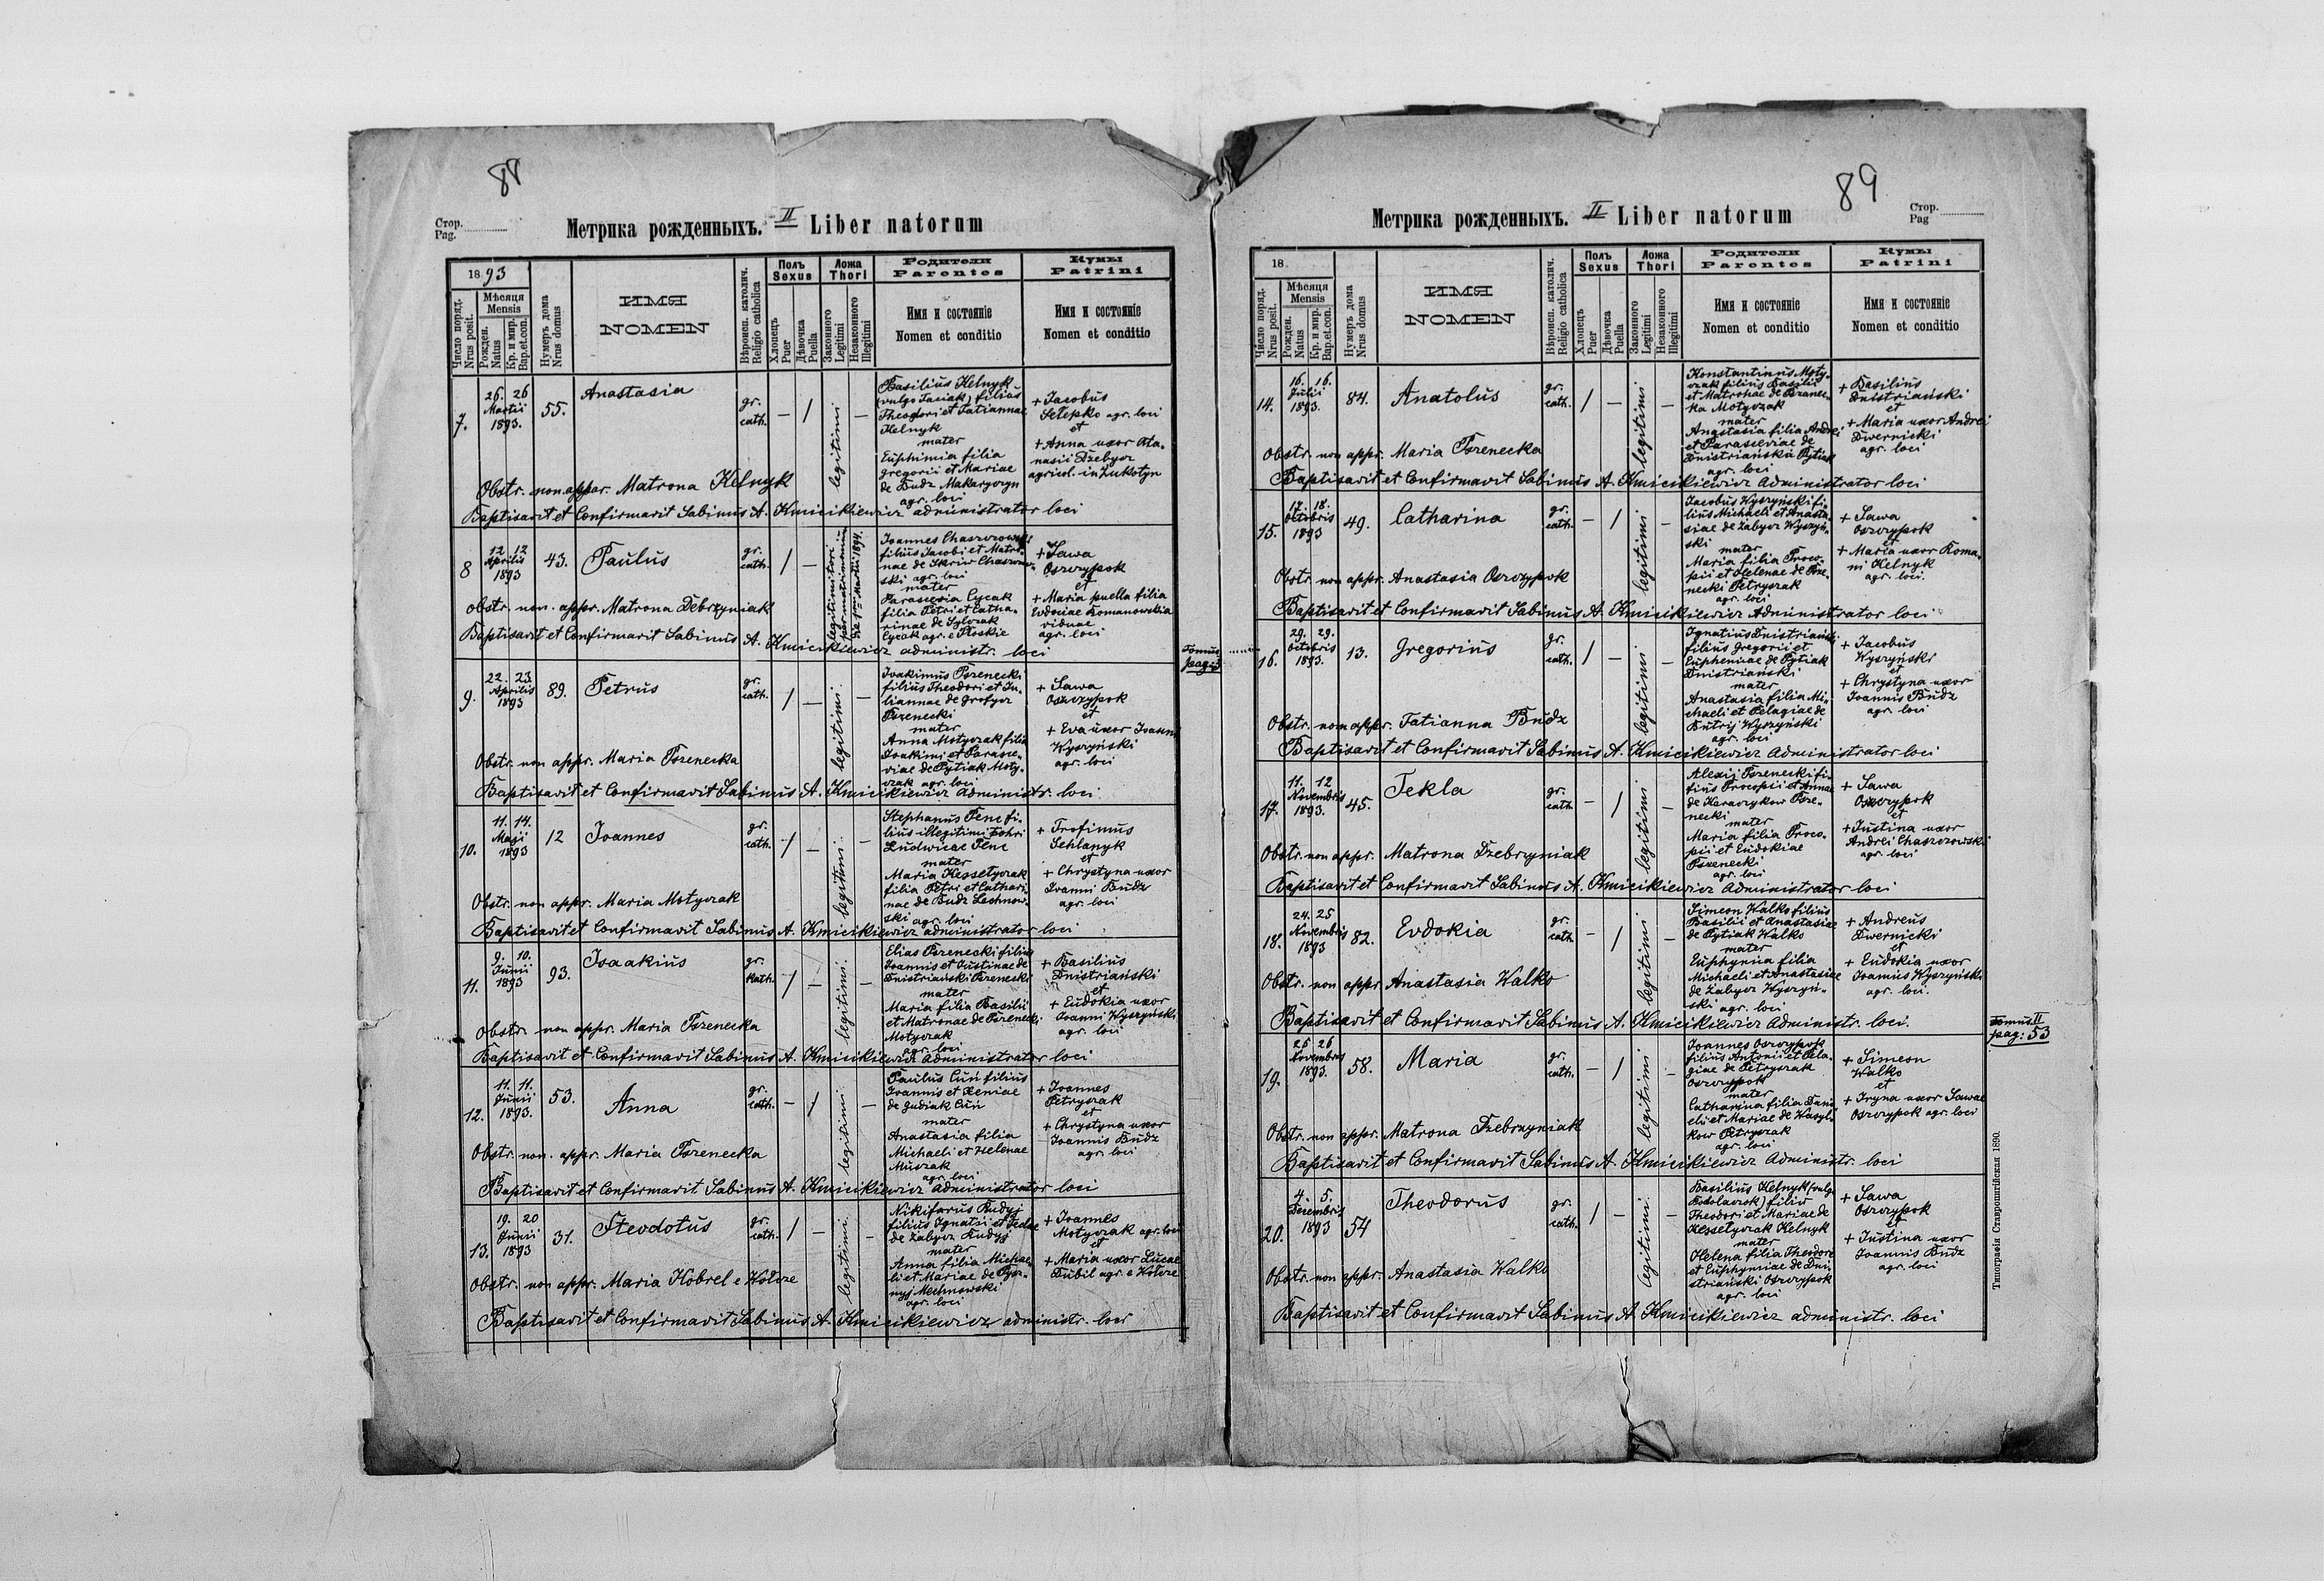 88
Стор.
Pag.
Метрика рожденныхъ. II Liber natorum
1893
Число поряд.
Nrus posit.
Мѣсяця
Mensis
Рожден.
Natus
Кр. и мир.
Bap.et.con.
Нумеръ дома
Nrus domus
ИМЯ
NOMEN
Вѣроисп. католич.
Religio catholica
Полъ
Sexus
Хлопець
Puer
Дѣвочка
Puella
Ложа
Thori
Законного
Legitimi
Незаконного
Illegitimi
Родители
Parentes
Имя и состоянiе
Nomen et conditio
Кумы
Patrini
Имя и состоянiе
Nomen et conditio
7.
26. 26
Martii
1893.
55.
Anastasia
gr.
cath.
— / legitimi —
Basilius Kelnyk
(vulgo Jaciak) filius
Theodori et Tatiannae
Kelnyk
mater
Euphimia filia
Gregorii et Mariae
de Budz Makaryczyn
agr. loci
+ Jacobus
Selepko agr. loci
et
+ Anna uxor Ata-
nasii Dzebycz
agricol. in Łukotyn
Obstr. non appr. Matrona Kelnyk
Baptisavit et Confirmavit Sabinus A. Kmicikiewicz administrator loci
8
12 12
Aprilis
1893
43.
Paulus
gr.
cath.
/ —
legitimitori
per matrimonium
Joannes Chaszczowski
filius Jacobi et Matro-
nae de Skriw Chaszczow-
ski agr. loci
mater
Parascevia Cycak
filia Petri et Catha-
rinae de Sylczak
Cycak agr. e Płoskie
+ Sawa
Oszczypok
et
+ Maria puella filia
Evdociae Romanowskia
viduae
agr. loci
obstr. non. appr. Matrona Debrzyniak
Baptisavit et Confirmavit Sabinus A. Kmicikiewicz administr. loci
9.
22. 23.
Aprilis
1893
89.
Petrus
gr.
cath.
/ — legitimi. —
Joakimus Pszenecki
filius Theodori et Ju-
liannae de Grofycz
Pszenecki
mater
Anna Motyczak filia
Joakimi et Parasce-
viae de Pytiak Moty-
czak agr. loci
+ Sawa
Oszczypok
et
+ Eva uxor Joanni
Wyszyński
agr. loci
Obstr. non appr. Maria Pszenecka
Baptisavit et Confirmavit Sabinus A. Kmicikiewicz Administr. loci
10.
11. 14.
Maji
1893
12
Joannes
gr.
cath.
/ — legitimi. —
Stephanus Penc fi-
lius illegitimi Tohri
Ludwicae Penc
mater
Maria Kessetyczak
filia Petri et Cathari-
nae de Budz Lechnow-
ski agr. loci
+ Trofimus
Sehlanyk
et
+ Chrystyna uxor
Joanni Budz
agr. loci
Obstr. non appr. Maria Motyczak
Baptisavit et Confirmavit Sabinus A. Kmicikiewicz administrator loci
11.
9. 10.
Junii
1893
93.
Isaakius
gr.
kath.
/ — legitimi. —
Elias Pszenecki filius
Joannis et Justinae de
Dnistriański Pszenecki
mater
Maria filia Basilii
et Matronae de Pszenecki
Motyczak
agr. loci
+ Basilius
Dnistriański
et
+ Eudokia uxor
Joanni Wyszyński
agr. loci
Obstr. non appr. Maria Pszenecka
Baptisavit et Confirmavit Sabinus A. Kmicikiewicz Administrator loci
12.
11. 11.
Junii
1893.
53.
Anna
gr.
cath.
— / legitimi —
Paulus Cuń filius
Joannis et Xeniae
de Gudiak Cuń
mater
Anastasia filia
Michaeli et Helenae
Muszak
agr. loci
+ Joannes
Petryszak
et
+ Chrystyna uxor
Joannis Budz
agr. loci
Obstr. non. appr. Maria Pszenecka
Baptisavit et Confirmavit Sabinus A. Kmicikiewicz Administrator loci
13.
19. 20
Junii
1893
31.
Steodotus
gr.
cath.
/ — legitimi. —
Nikiforus Rudyj
filius Ignatii et Teclae
de Zabycz Rudyj
mater
Anna filia Michae-
li et Mariae de
Mechnowski
agr. loci
+ Joannes
Motyczak agr. loci
et
+ Maria uxor Lucae
Dubil agr. e Kołcze
Obstr. non appr. Maria Kobrel e Kołcze
Baptisavit et Confirmavit Sabinus A. Kmicikiewicz administr. loci
Tomus
pag:
89
Стор.
Pag
Метрика рожденныхъ. II Liber natorum
18
Число поряд.
Nrus posit.
Мѣсяця
Mensis
Рожден.
Natus
Кр. и мир.
Bap.et.con.
Нумеръ дома
Nrus domus
ИМЯ
NOMEN
Вѣроисп. католич.
Religio catholica
Полъ
Sexus
Хлопець
Puer
Дѣвочка
Puella
Ложа
Thori
Законного
Legitimi
Незаконного
Illegitimi
Родители
Parentes
Имя и состоянiе
Nomen et conditio
Кумы
Patrini
Имя и состоянiе
Nomen et conditio
14.
16. 16.
Julii
1893.
84.
Anatolus
gr.
cath.
/ — legitimi —
Konstantinus Moty-
czak filius Basilii
et Matronae de Pszenec-
ka Motyczak
mater
Anastasia filia Andrei
et Parasceviae de
Dnistriańska Pytiak
agr. loci
+ Basilius
Dnistriański
et
+ Maria uxor Andrei
Dwernicki
agr. loci
Obstr. non appr. Maria Pszenecka
Baptisavit et Confirmavit Sabinus A. Kmicikiewicz Administrator loci
15.
17. 18.
Octobris
1893
49.
Catharina
gr.
cath.
— / legitimi —
Jacobus Wyszyński fi-
lius Michaeli et Anasta-
siae de Zabycz Wyszyń-
ski
mater
Maria filia Proco-
pii et Helenae de Psze-
necki Petryszak
agr. loci
+ Sawa
Oszczypok
et
+ Maria uxor Roma-
ni Kelnyk
agr. loci.
Obstr. non appr. Anastasia Oszczypok
Baptisavit et Confirmavit Sabinus A. Kmicikiewicz Administrator loci
16.
29. 29.
Octobris
1893.
13.
Gregorius
gr.
cath.
/ — legitimi —
Ignatius Dnistriański
filius Gregorii et
Eupheniae de Pytiak
Dnistriański
mater
Anastasia filia Mi-
chaeli et Pelagiae de
Dutryj Wyszyński
agr. loci
+ Jacobus
Wyszyński
et
+ Chrystyna uxor
Joannis Budz
agr. loci
Obstr. non appr. Tatianna Budz
Baptisavit et Confirmavit Sabinus A. Kmicikiewicz Administrator loci
17.
11. 12
Novembris
1893.
45.
Tekla
gr.
cath
— / legitimi —
Alexij Pszenecki fi-
lius Procopii et Annae
de Haraszykow Psze-
necki
mater
Maria filia Proco-
pii et Eudokiae
Pszenecki
agr. loci
+ Sawa
Oszczypok
et
+ Justina uxor
Andrei Chaszczowski
agr. loci
Obstr. non appr. Matrona Dzebrzyniak
Baptisavit et Confirmavit Sabinus A. Kmicikiewicz Administrator loci
18.
24. 25
Novembris
1893
82.
Evdokia
gr.
cath
— / legitimi —
Simeon Walko filius
Basilii et Anastasiae
de Pytiak Walko
mater
Euphymia filia
Michaeli et Anastasiae
de Zabycz Wyszyń-
ski agr. loci
+ Andreus
Dwernicki
et
+ Eudokia uxor
Joannis Wyszyński
agr. loci.
Obstr. non appr Anastasia Walko
Baptisavit et Confirmavit Sabinus A. Kmicikiewicz Administr. loci.
Tomus II
pag: 53
19.
25 26
Novembris
1893.
58.
Maria
gr.
cath.
— / legitimi —
Joannes Oszczypok
filius Antonii et Pela-
giae de Petryszak
Oszczypok
mater
Catharina filia Dani-
eli et Mariae de Wasyl-
kow Petryszak
agr. loci
+ Simeon
Walko
et
+ Iryna uxor Sawae
Oszczypok agr. loci
Obstr. non appr. Matrona Dzebrzyniak
Baptisavit et Confirmavit Sabinus A. Kmicikiewicz Administr. loci
20.
4. 5.
Decembris
1893
54
Theodorus
gr.
cath.
/ — legitimi. —
Basilius Kelnyk (vulgo
) filius
Theodori et Mariae de
Kessetyczak Kelnyk
mater
Helena filia Theodore
et Euphymiae de Dni-
striański Oszczypok
agr. loci
+ Sawa
Oszczypok
et
+ Justina uxor
Joannis Budz
agr. loci
Obstr. non appr. Anastasia Walko
Baptisavit et Confirmavit Sabinus A Kmicikiewicz administr. loci
Типографія Ставропигійская 1890.